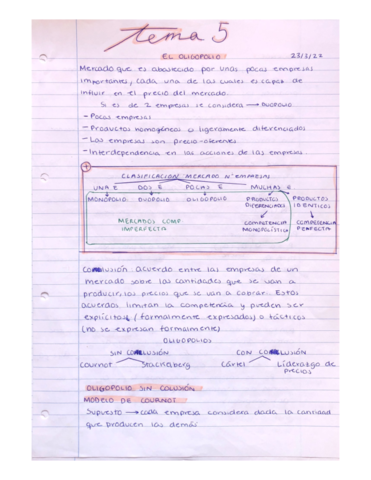 tema 5
EL OLIGOPOLIO 23/3/22
Mercado que es abastecido por unas pocas empresas
importantes, cada una de las cuales es capaz de
influir en el precio del mercado.
Si es de 2 empresas se considera → DUOPOLIO
- Pocas empresas
- Productos homogéneos o ligeramente diferenciados
- Las empresas son precio-oferentes
- Interdependencia en las acciones de las empresas
CLASIFICACION MERCADO Nº EMPRESAS
UNA E DOS E POCAS E MUCHAS E
MONOPOLIO DUOPOLIO OLIGOPOLIO PRODUCTOS DIFERENCIADOS PRODUCTOS IDENTICOS
MERCADOS COMP IMPERFECTA COMPETENCIA MONOPOLÍSTICA COMPETENCIA PERFECTA
Colusión: acuerdo entre las empresas de un
mercado sobre las cantidades que se van a
producir, los precios que se van a cobrar. Estos
acuerdos limitan la competencia y pueden ser
explícitos (formalmente expresados) o tácticos
(no se expresan formalmente)
OLIGOPOLIOS
SIN COLUSIÓN CON COLUSIÓN
Cournot Stackelberg Cártel Liderazgo de
precios
OLIGOPOLIO SIN COLUSIÓN
MODELO DE COURNOT
Supuesto → cada empresa considera dada la cantidad
que producen las demás